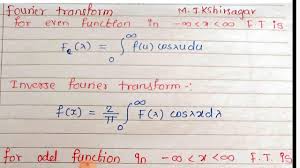 Fourier transform
M.J.Kshirsagar
for even function in -∞<x<∞ F.T is
Fc(λ) = ∫₀^∞ f(u) cosλu du
Inverse fourier transform-:
f(x) = 2/π ∫₀^∞ F(λ) cosλx dλ
for odd function in -∞<x<∞ F.T is